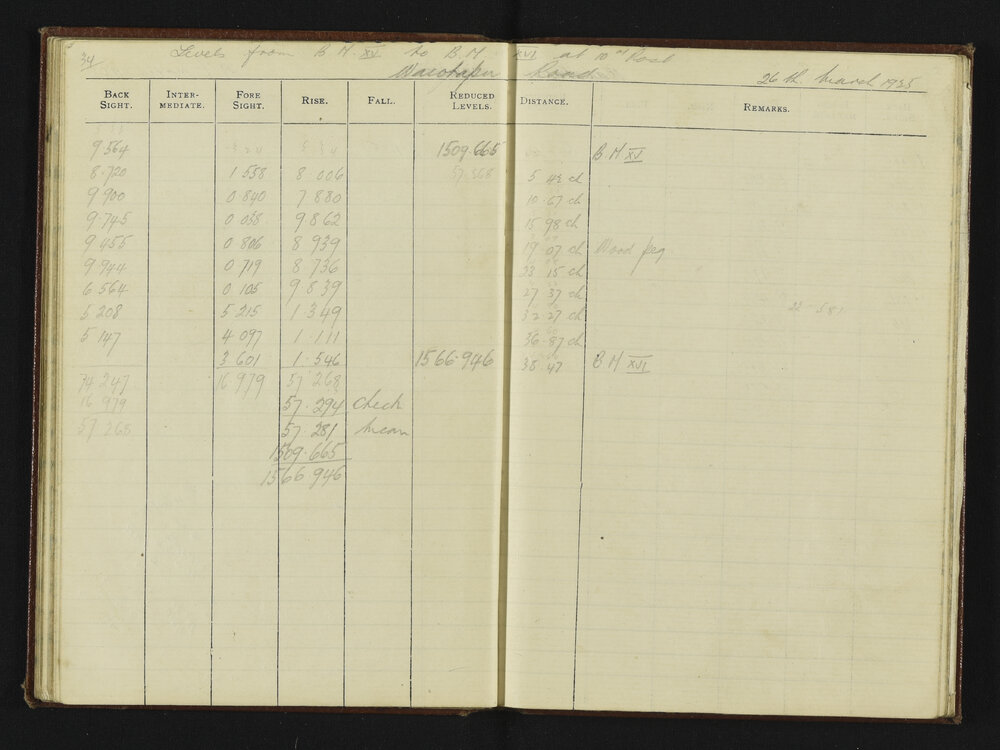 34 Levels from B M XV to B M XVI at 10 M Post
Waiotapu Road 26th March 1925
BACK SIGHT. INTER-MEDIATE. FORE SIGHT. RISE. FALL. REDUCED LEVELS. DISTANCE. REMARKS.
9 564 1509.665 B.M XV
8.720 1 558 8 006 5 43 ch
9 900 0 840 7 880 10.67 ch
9.745 0 038 9.862 15 98 ch
9 455 0 806 8 939 19 07 ch Wood peg
9 944 0 719 8 736 23 15 ch
6 564 0 105 9 839 27 37 ch
5 208 5 215 1 349 32 27 ch
5 147 4 097 1 111 36 87 ch
3 601 1.546 1566.946 38.47 B.M XVI
74 247 16 979 57 268
16 979 57.294 Check
57 268 57.281 Mean
1509.665
1566.946